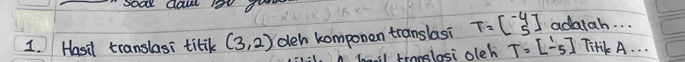 1. Hasil translasi titik (3,2) oleh komponen translasi T = [-4 5] adalah...
hasil translasi oleh T = [1 -5] Titik A...